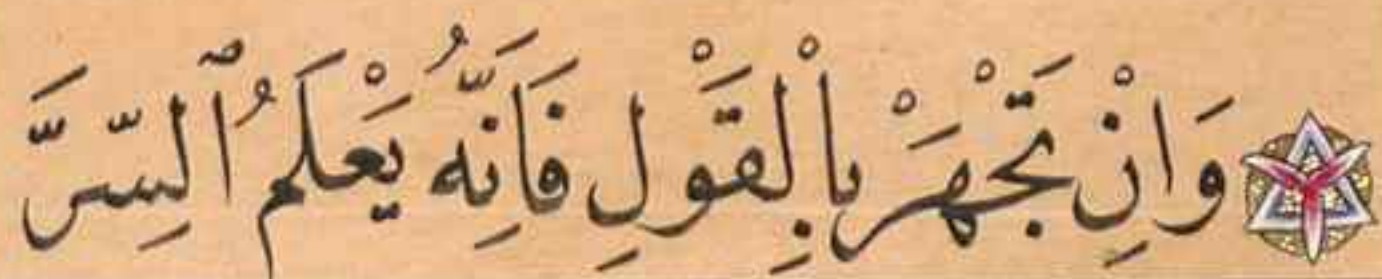 وَاِنْ تَجْهَرْ بِاْلقَوْلِ فَاِنَّهُ يَعْلَمُ ٱلسِّرَّ